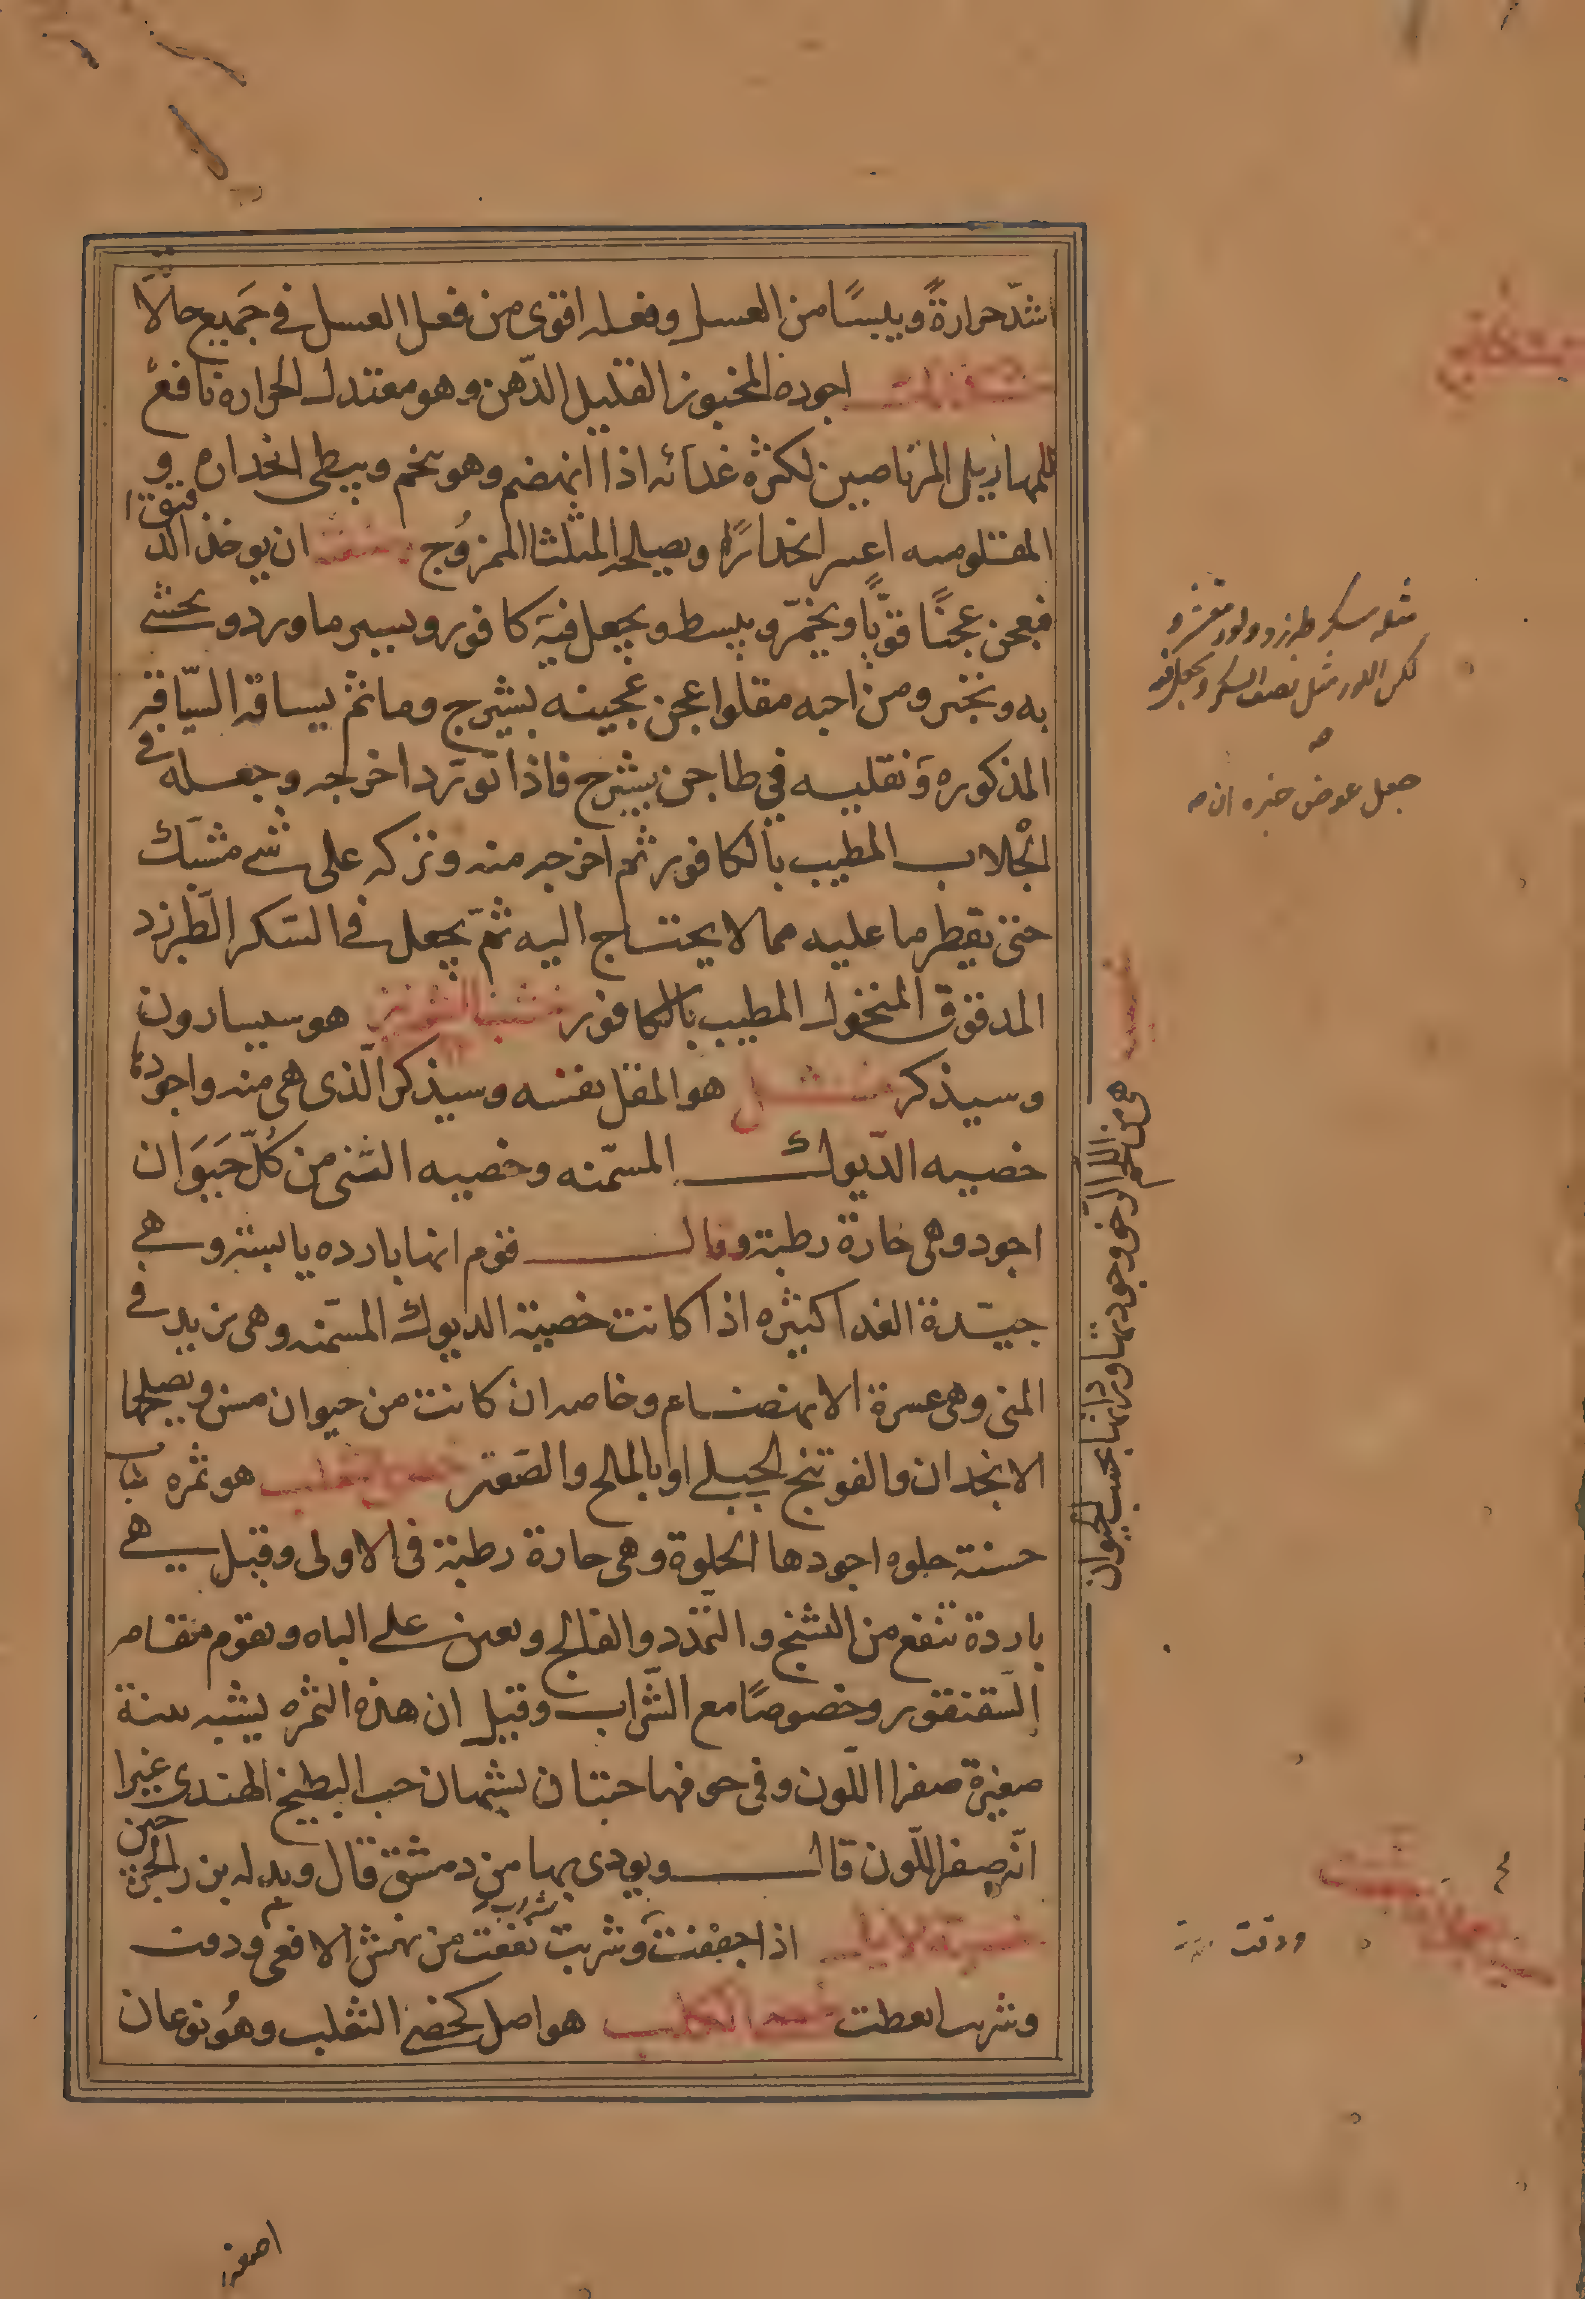 اشدّ حرارةً ويبسًا من العسل وفعله اقوى من فعل العسل في جَميع حالاّ
اجوده المخبوز القليل الدّهن وهو معتدل الحرارة نافع
للمهازيل المرتاضين لكثره غذائه اذا انهضم وهو يتخم ويبطى انحداره و
المقلو منه اعسر انحدارًا ويصلحه المثلث الممزوُج وصنعته ان يوخذ الدقيق
فيعجن عجنًا قويًّا ويخمّر ويبسط ويجعل فيه كافور ويسير ماورد ويحشى
به ويخبز ومن احبه مقلوا عجن عجينه بشيرج وماثم يساقه السّياقه
المذكوره وَنقليه في طاجن بشيرج فاذا تورّد اخرجه وجعله في
الجْلاب المطيب بالكافور ثم اخرجه منه وتركه على شي مشبّك
حتى يقطر ما عليه مما لا يحتاج اليه ثمّ يجعل في السّكر الطّبرزد
المدقوق المنخول المطيب بالكافور هو سيسارون
وسيذكر هو المقل نفسه وسيذكر الّذى هى منه واجوده
خصيه الدّيوك المسمّنه وخصيه الفتى من كُلّ حَيَوَان
اجود وهى حارة رطبة وقال قوم انها بارده يابسة وهي
جيّدة الغذا كثيره اذا كانت خصية الديوك المسمّنه وهى تزيد في
المنى وهى عسرة الانهضام وخاصه ان كانت من حيوان مسن ويصلحها
الانجدان والفوتنج الجبلي او بالملح والصَعتر خصى الثعلب هو ثمره نبات
حسنة حلوه اجودها الحلوة وهى حارة رطبة فى الاولى وقيل هي
باردة تنفع من التشنج والتمّدد والفالج وتعين على الباه وتقوم مقام
السّقنقور وخصوصًا مع الشّراب وقيل ان هذه الثمره يشبه
صغيرة صفرا اللّون وفى جوفها حبتان يشبهان حب البطيخ الهندى غير
انّه صفر اللّون قال ويودى بها من دمشق قال وبدله بزر الجرجير
خصية الايل اذا جففت وشربت نفعت من نهش الافعى ودقت
وشربت انعظت خصى الكلب هو اصل كخصى الثعلب وهُو نوعان
هى من اللحم الرخو وجودتها وردانها بحسب الحيوان
مثله سكر طبرزد ولوز مقشر و
لكن اللوز مثل نصف السكر ويجعل فيه
جعل عوض خبزه ان
ودقت
اصغر